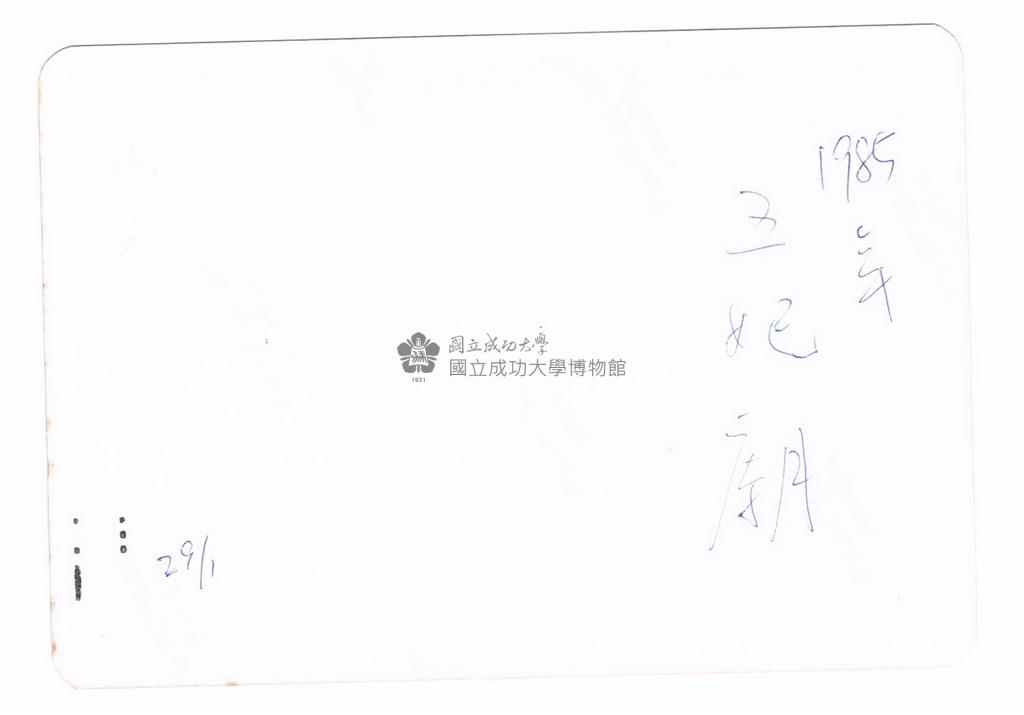 1985年
五妃廟
國立成功大學
國立成功大學博物館
1931
29/1